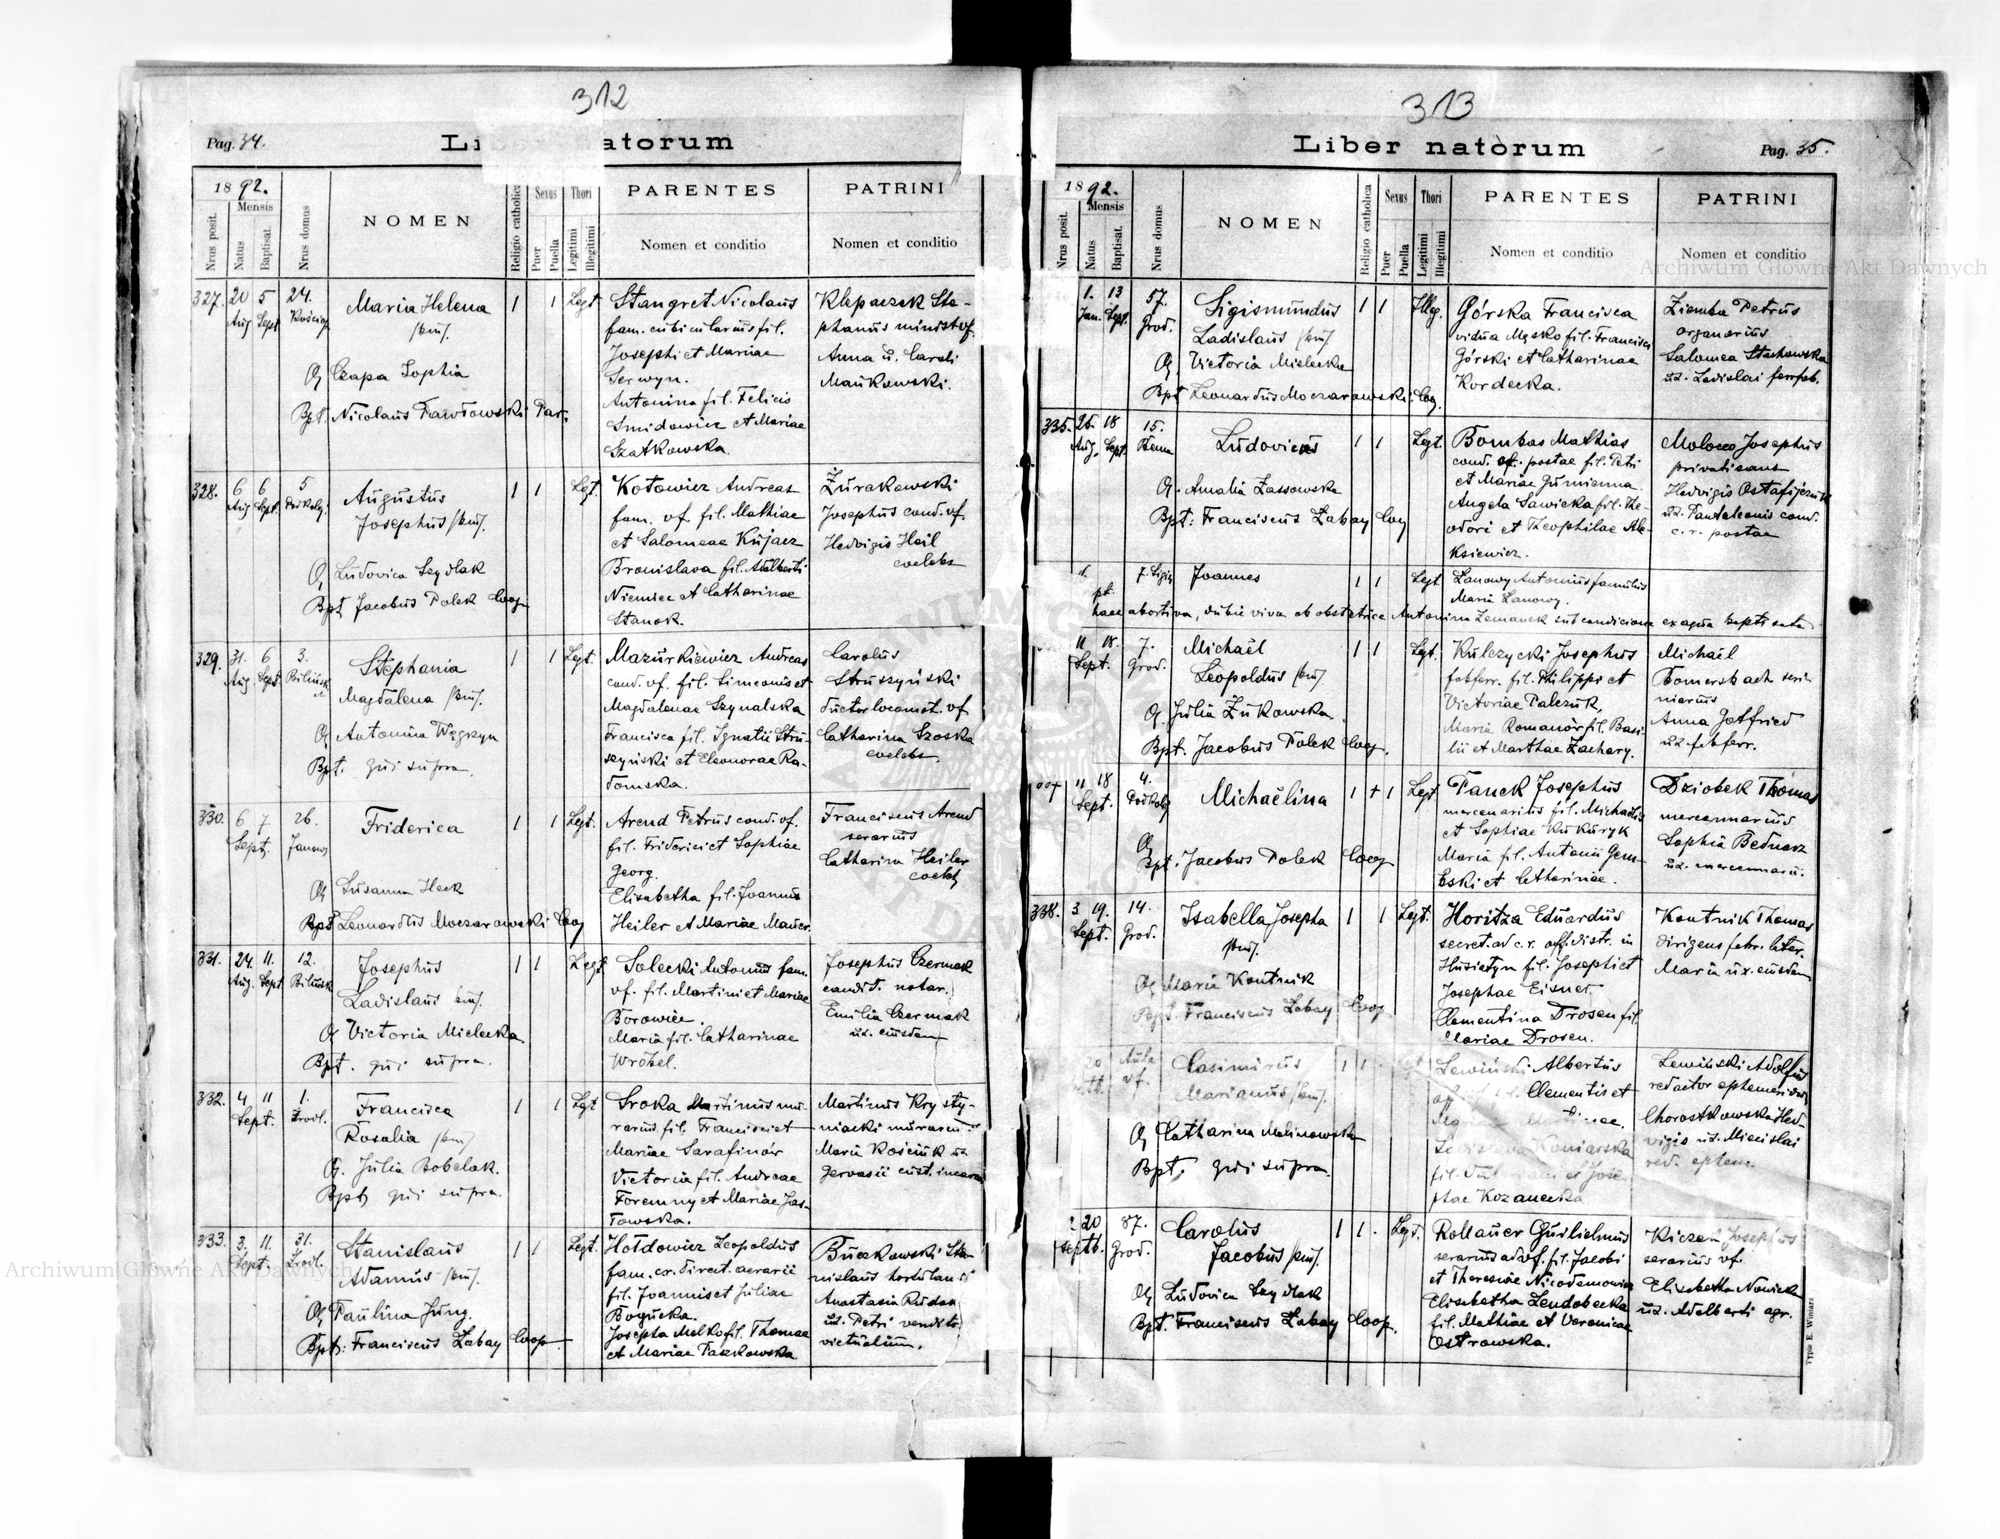 312
Pag. 34.
Liber natorum
18 92.
Nrus posit.
Mensis
Natus
Baptisat.
Nrus domus
NOMEN
Religio catholica
Sexus
Puer
Puella
Thori
Legitimi
Illegitimi
PARENTES
Nomen et conditio
PATRINI
Nomen et conditio
327. 20 Aug 5 Sept 24.
Maria Helena
/bin/.
O Czapa Sophia
Bpt. Nicolaus Pawłowski Par.
1 1 Legt.
Stangret Nicolaus
fam. cubicularius fil.
Josephi et Mariae
Serwyn.
Antonina fil. Felicis
Smidowicz et Mariae
Szatkowska.
Klepaczek Ste-
phanus minist vf.
Anna u. Caroli
Mańkowski.
328. 6 Aug 6 Sept. 5
Augustus
Josephus /bin/.
O Ludovica Szydłak
Bpt Jacobus Polek Coop
1 1 Legt.
Kotowicz Andreas
fam. vf. fil. Mathiae
et Salomeae Kujacz
Bronislava fil. Adalberti
Niemiec et Catharinae
Stanok.
Żurakowski
Josephus cond. vf.
Hedvigis Heil
coelebs
329. 31. Aug. 6 Sept 3. Bilińsk
Stephania
Magdalena /bin/.
O Antonina Węgrzyn
Bpt. qui supra.
1 1 Legt.
Mazurkiewicz Andreas
cond. vf. fil. Simeonis et
Magdalenae Szynalska
Francisca fil. Ignatii Stru-
szyński et Eleonorae Ra-
domska.
Carolus
Struszyński
ductor locomot. vf
Catharina Szoska
coelebs.
330. 6 7 Sept. 26. Janow
Friderica
O Susanna Heck
Bpt Leonardus Moczarowski Coop
1 1 Legt.
Arend Petrus cond. vf.
fil. Friderici et Sophiae
Georg.
Elisabetha fil. Joannis
Heiler et Mariae Maurer.
Franciscus Arend
serarius
Catharina Heiler
coelebs
331. 24. Aug. 11. Sept 12. Bilińsk
Josephus
Ladislaus /bin/.
O Victoria Mielecka
Bpt. qui supra.
1 1 Legt
Solecki Antonius fam.
vf. fil. Martini et Mariae
Borowiec.
Maria fil. Catharinae
Wróbel.
Josephus Czermak
candit. notar.
Emilia Czermak
ux. eiusdem
332. 4 11 Sept. 1. Źrodl.
Francisca
Rosalia /bin/
O. Julia Bobelak.
Bpt qui supra.
1 1 Legt
Sroka Martinus mu-
rarius fil. Francisci et
Mariae Sarafinów
Victoria fil. Andreae
Foremny et Mariae Jas-
towska.
Martinus Krysty-
niacki murarius
Maria Kościuk ux
Gervasii cust. incarc.
333. 3. 11. Sept. 31. Źrodl.
Stanislaus
Adamus /bin/.
O Paulina Jung.
Bpt: Franciscus Łabay Coop
1 1 Legt.
Hołdowicz Leopoldus
fam. cr. direct. aerarii
fil. Joannis et Juliae
Bogucka.
Josepha Melko fil. Thomae
et Mariae Paszkowska
Buczkowski Sta-
nislaus hortulanus
Anastasia Rudka
ux. Petri vendit.
victualium.
313
Liber natorum
Pag. 35.
18 92.
Nrus posit.
Mensis
Natus
Baptisat.
Nrus domus
NOMEN
Religio catholica
Sexus
Puer
Puella
Thori
Legitimi
Illegitimi
PARENTES
Nomen et conditio
PATRINI
Nomen et conditio
1. Jan. 13 Sept. 57. Grod.
Sigismundus
Ladislaus /bin/
O Victoria Mielecka
Bpt Leonardus Moczarowski Coop.
1 1 Illeg.
Górska Francisca
vidua Męsko fil. Francisci
Górski et Catharinae
Kordecka.
Ziemba Petrus
organarius
Salomea Stachowska
ux. Ladislai ferrfab.
335. 25. Aug. 18 Sept. 15.
Ludovicus
O. Amalia Zassowska
Bpt: Franciscus Łabay Coop
1 1 Legt.
Bombas Mathias
cond. off. postae fil. Petri
et Mariae Gumienna.
Angela Sawicka fil. The-
odori et Theophilae Ale-
ksiewicz.
Molowo Josephus
privatisans
Hedvigis Ostafijczuk
ux. Pantaleonis cond.
c. r. postae
7.
Joannes
1 1 Legt
Łanowy Antonius famulus
Maria Łanowy.
haec abortiva, dubie viva ob obstetrice Antonina Zemanek sub condicione ex aqua baptisata
11 18. Sept. 7. Grod.
Michaël
Leopoldus /bin/.
O. Julia Żukowska
Bpt. Jacobus Polek Coop.
1 1 Legt.
Kulczycki Josephus
fabferr. fil. Philippi et
Victoriae Palczuk,
Maria Romanów fil. Basi-
lii et Marthae Zachary.
Michaël
Bomersbach scri-
niarius
Anna Gotfried
ux fabferr.
11 18 Sept. 4.
Michaëlina
O
Bpt. Jacobus Polek Coop
1 + 1 Legt
Panek Josephus
mercenarius fil. Michaëlis
et Sophiae Kukuryk
Maria fil. Antonii Gem-
bski et Catharinae.
Dziobek Thomas
mercennarius
Sophia Bednarz
ux. mercennarii.
338. 3 19. Sept. 14. Grod.
Isabella Josepha
/bin/.
O Maria Koutnik
Bpt. Franciscus Łabay Coop
1 1 Legt.
Horitza Eduardus
secret. ad c. r. off. distr. in
Husiatyn fil. Josephi et
Josephae Eisner.
Clementina Drosen fil.
Mariae Drosen.
Koutnik Thomas
dirigens fabr. liter.
Maria ux. eiusdem
Casimirus
Marianus /bin/.
O Catharina Malinowska
Bpt. qui supra.
1 1
Lewiński Albertus
Clementis et
Ladislava Koniarska
ptae Kozanecka
Lewiński Adolfus
redactor ephemeridum
Chorostkowska Hed-
vigis ux. Miecislai
red. ephem.
2 20 Septb. 87. Grod.
Carolus
Jacobus /bin/.
O Ludovica Szydłak
Bpt Franciscus Łabay Coop.
1 1. Legt.
Rollauer Guilielmus
serarius ad vf. fil. Jacobi
et Theresiae Nicodemowicz
Elisabetha Lendobecka
fil. Mathiae et Veronicae
Ostrowska.
Kiczek Josephus
serarius vf.
Elisabetha Nowick
ux. Adalberti agr.
Typis E. Winiarz
Archiwum Główne Akt Dawnych
Archiwum Główne Akt Dawnych